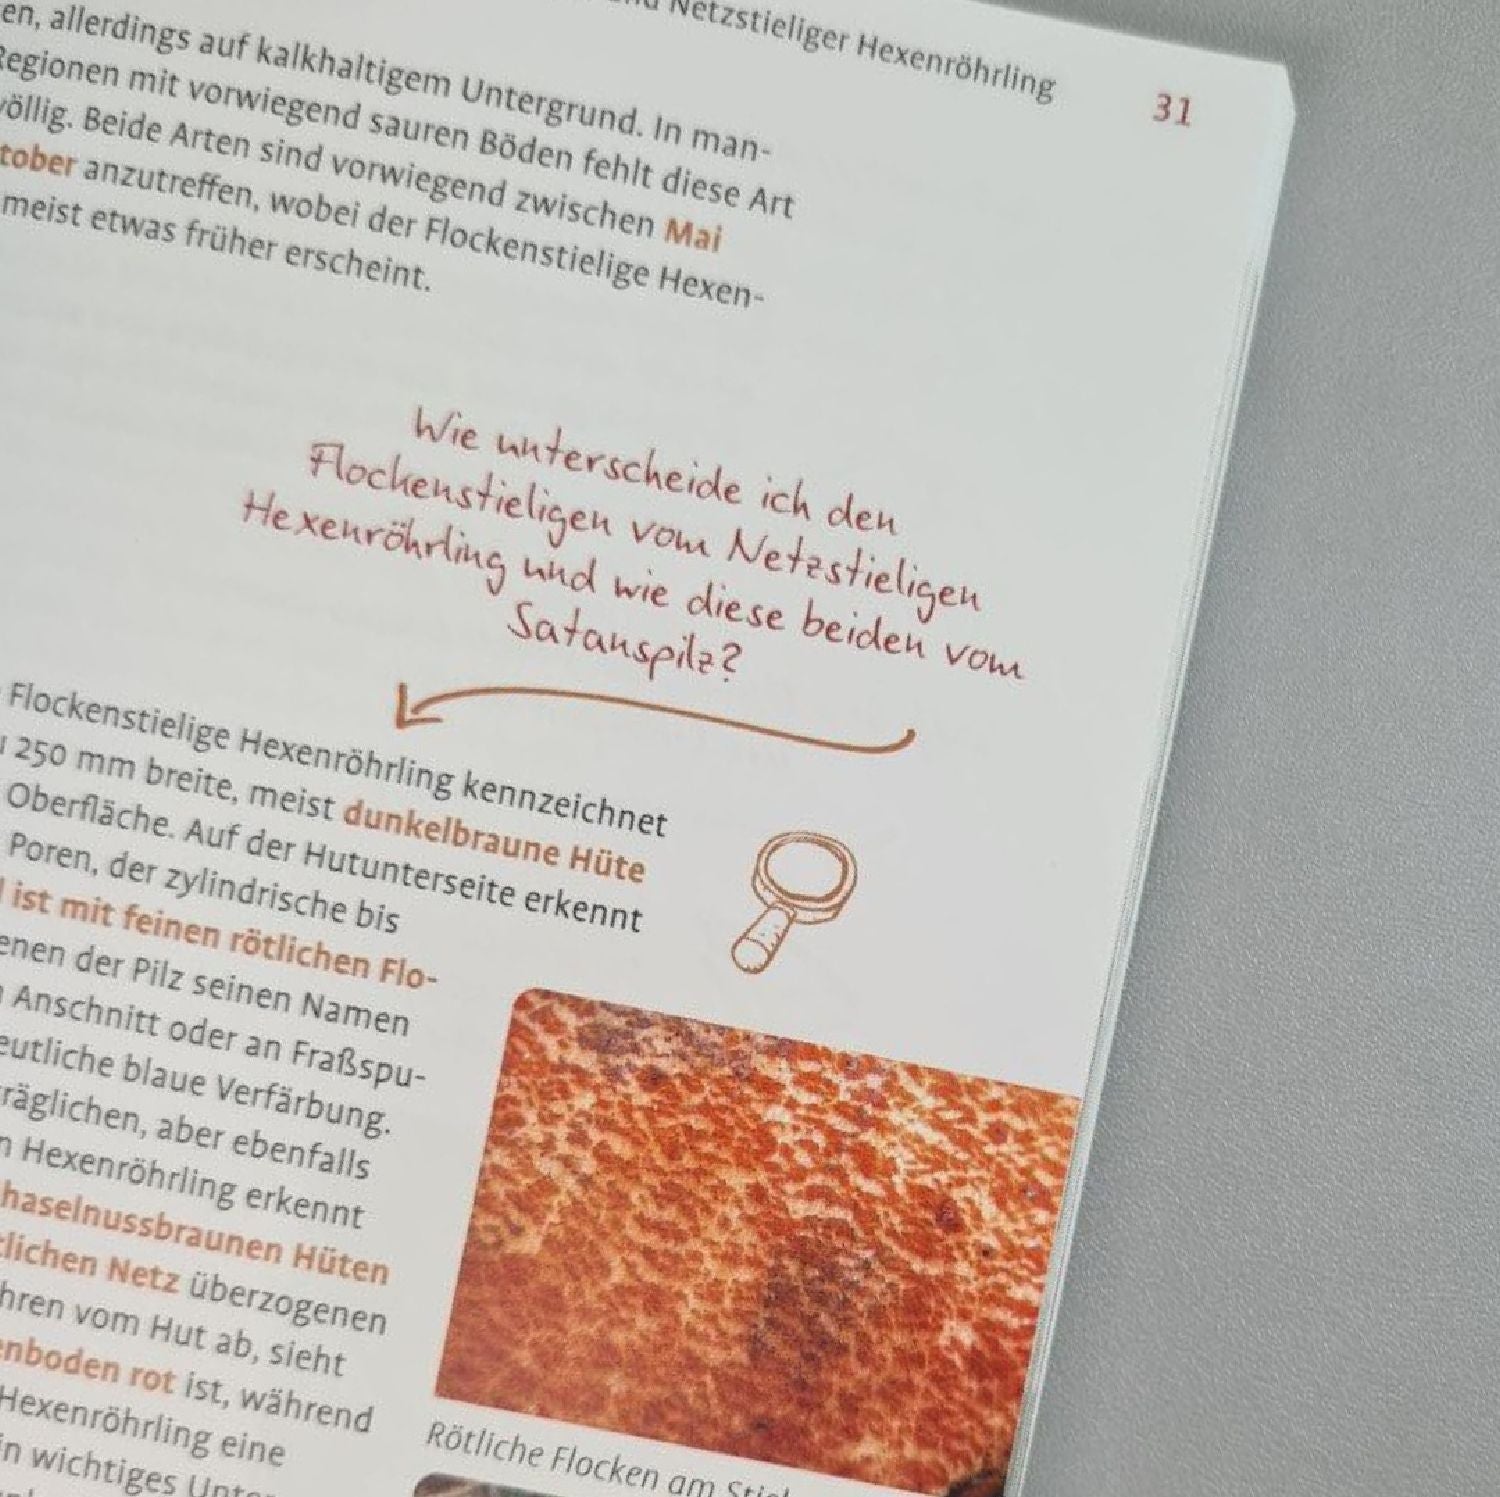 Netzstieliger Hexenröhrling
31
allerdings auf kalkhaltigem Untergrund. In man-
Regionen mit vorwiegend sauren Böden fehlt diese Art
völlig. Beide Arten sind vorwiegend zwischen Mai
tober anzutreffen, wobei der Flockenstielige Hexen-
meist etwas früher erscheint.
Wie unterscheide ich den
Flockenstieligen vom Netzstieligen
Hexenröhrling und wie diese beiden vom
Satanspilz?
Flockenstielige Hexenröhrling kennzeichnet
250 mm breite, meist dunkelbraune Hüte
Oberfläche. Auf der Hutunterseite erkennt
Poren, der zylindrische bis
ist mit feinen rötlichen Flo-
enen der Pilz seinen Namen
Anschnitt oder an Fraßspu-
eutliche blaue Verfärbung.
räglichen, aber ebenfalls
Hexenröhrling erkennt
haselnussbraunen Hüten
tlichen Netz überzogenen
hren vom Hut ab, sieht
enboden rot ist, während
Hexenröhrling eine
in wichtiges Unte-
Rötliche Flocken am Stiel